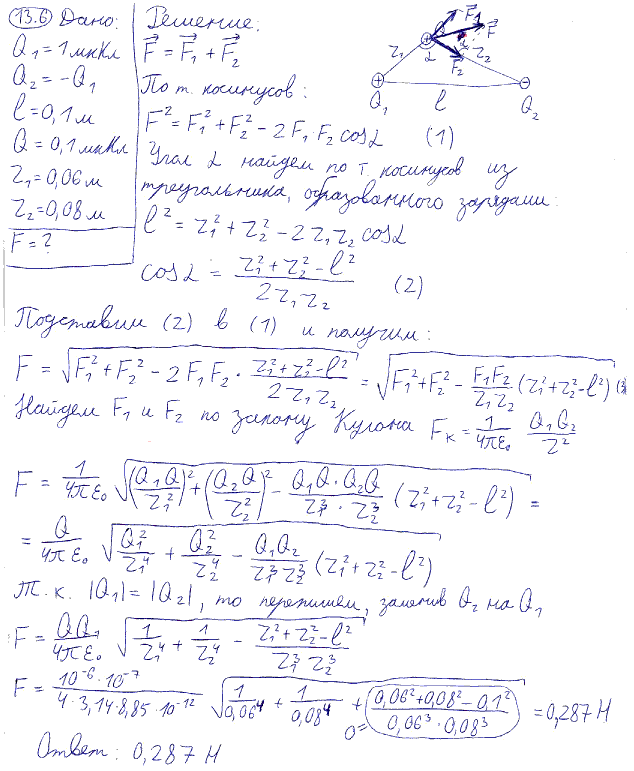 13.6 Дано:
Q₁ = 1 мкКл
Q₂ = -Q₁
l = 0,1 м
Q = 0,1 мкКл
r₁ = 0,06 м
r₂ = 0,08 м
F = ?
Решение:
F⃗ = F⃗₁ + F⃗₂
По т. косинусов:
F² = F₁² + F₂² - 2F₁F₂ cos α (1)
Угол α найдем по т. косинусов из
треугольника, образованного зарядами:
l² = r₁² + r₂² - 2r₁r₂ cos α
cos α = (r₁² + r₂² - l²) / (2r₁r₂) (2)
F⃗₁
F⃗
α
F⃗₂
r₁ α r₂
Q₁ l Q₂
Подставим (2) в (1) и получим:
F = √(F₁² + F₂² - 2F₁F₂ · (r₁² + r₂² - l²) / (2r₁r₂)) = √(F₁² + F₂² - (F₁F₂ / r₁r₂) · (r₁² + r₂² - l²)) (3)
Найдем F₁ и F₂ по закону Кулона Fк = (1 / 4πε₀) (Q₁Q₂ / r²)
F = (1 / 4πε₀) √((Q₁Q / r₁²)² + (Q₂Q / r₂²)² - (Q₁Q · Q₂Q / r₁³ · r₂³) (r₁² + r₂² - l²)) =
= (Q / 4πε₀) √(Q₁² / r₁⁴ + Q₂² / r₂⁴ - (Q₁Q₂ / r₁³r₂³) (r₁² + r₂² - l²))
Т.к. |Q₁| = |Q₂|, то перепишем, заменив Q₂ на Q₁
F = (QQ₁ / 4πε₀) √(1 / r₁⁴ + 1 / r₂⁴ - (r₁² + r₂² - l²) / (r₁³r₂³))
F = (10⁻⁶ · 10⁻⁷) / (4 · 3,14 · 8,85 · 10⁻¹²) √(1 / 0,06⁴ + 1 / 0,08⁴ + (0,06² + 0,08² - 0,1²) / (0,06³ · 0,08³)) = 0,287 Н
0=
Ответ: 0,287 Н